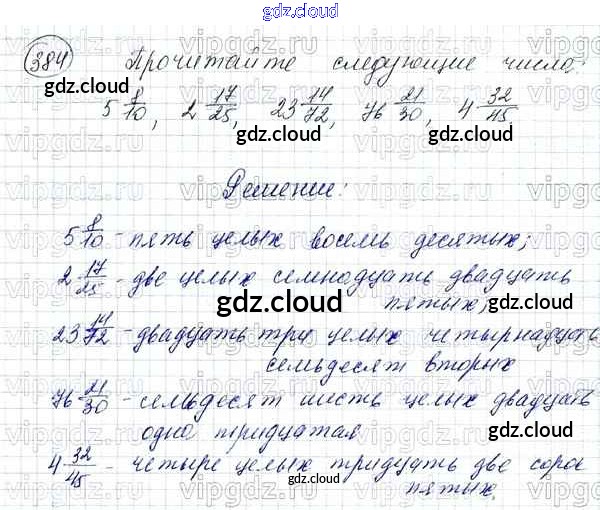 gdz.cloud
384 Прочитайте следующие числа:
5 8/10, 2 17/25, 23 14/72, 76 21/30, 4 32/45
Решение:
5 8/10 - пять целых восемь десятых;
2 17/25 - две целых семнадцать двадцать
пятых;
23 14/72 - двадцать три целых четырнадцать
семьдесят вторых
76 21/30 - семьдесят шесть целых двадцать
одна тридцатая
4 32/45 - четыре целых тридцать две сорок
пятых.